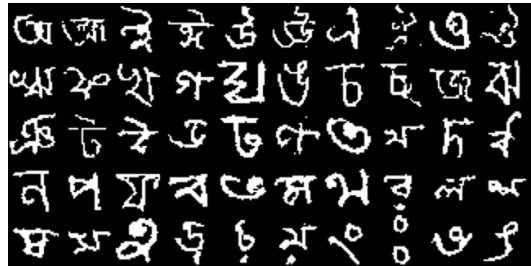 অ আ ই ঈ উ ঊ এ ঐ ও ঔ
ঋ ক খ গ ঘ ঙ চ ছ জ ঝ
ঞ ট ঠ ড ঢ ণ ত থ দ ধ
ন প ফ ব ভ ম য র ল শ
ষ স হ ড় ঢ় য় ং ঃ ৎ ঁ